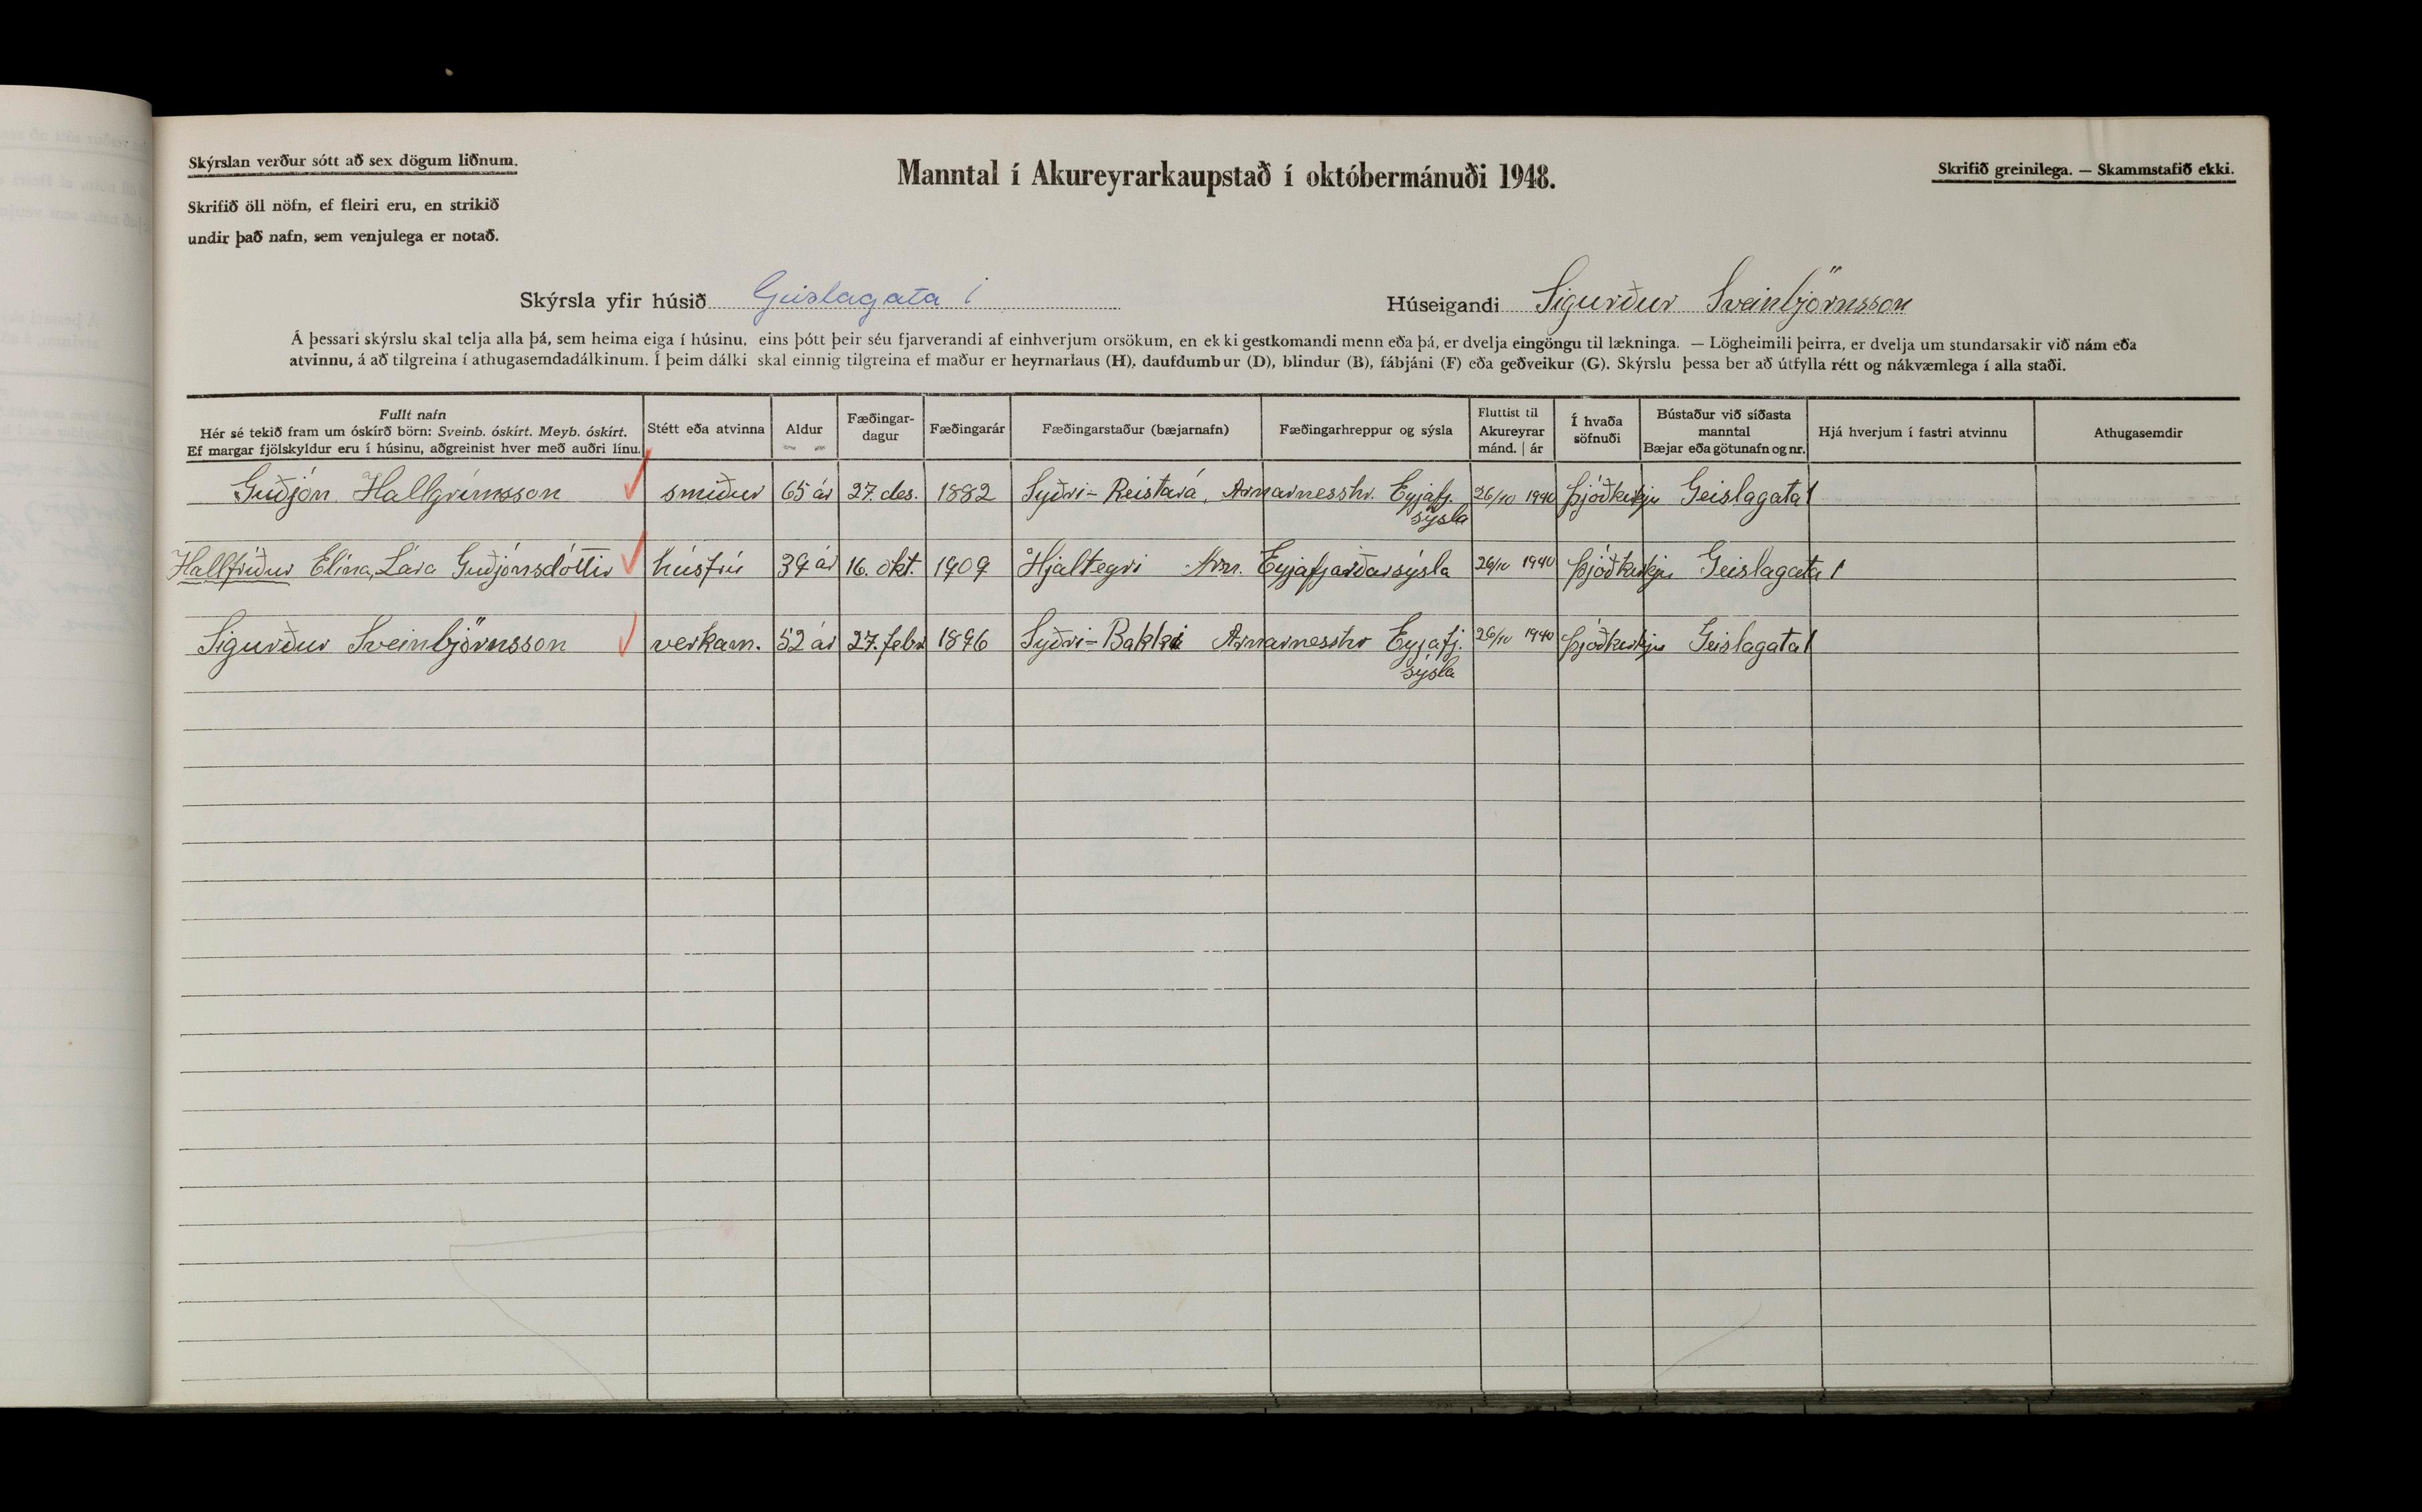 Skýrslan verður sótt að sex dögum liðnum.
Skrifið öll nöfn, ef fleiri eru, en strikið
undir það nafn, sem venjulega er notað.
Manntal í Akureyrarkaupstað í októbermánuði 1948.
Skrifið greinilega. — Skammstafið ekki.
Skýrsla yfir húsið Geislagata 1
Húseigandi Sigurður Sveinbjörnsson
Á þessari skýrslu skal telja alla þá, sem heima eiga í húsinu, eins þótt þeir séu fjarverandi af einhverjum orsökum, en ekki gestkomandi menn eða þá, er dvelja eingöngu til lækninga. — Lögheimili þeirra, er dvelja um stundarsakir við nám eða
atvinnu, á að tilgreina í athugasemdadálkinum. Í þeim dálki skal einnig tilgreina ef maður er heyrnarlaus (H), daufdumbur (D), blindur (B), fábjáni (F) eða geðveikur (G). Skýrslu þessa ber að útfylla rétt og nákvæmlega í alla staði.
Fullt nafn
Hér sé tekið fram um óskírð börn: Sveinb. óskírt. Meyb. óskírt.
Ef margar fjölskyldur eru í húsinu, aðgreinist hver með auðri línu.
Stétt eða atvinna
Aldur
Fæðingar-
dagur
Fæðingarár
Fæðingarstaður (bæjarnafn)
Fæðingarhreppur og sýsla
Fluttist til
Akureyrar
mánd. | ár
Í hvaða
söfnuði
Bústaður við síðasta
manntal
Bæjar eða götunafn og nr.
Hjá hverjum í fastri atvinnu
Athugasemdir
Guðjón Hallgrímsson smiður 65 ár 27. des. 1882 Syðri-Reistará, Arnarnesshr. Eyjafj. 26/10 1940 þjóðkirkju Geislagata 1
sýsla
Hallfríður Elína, Lára Guðjónsdóttir húsfrú 39 ár 16. okt. 1909 Hjaltegri Arn. Eyjafjarðarsýsla 26/10 1940 þjóðkirkju Geislagata 1
Sigurður Sveinbjörnsson verkam. 52 ár 27. febr 1896 Syðri-Bakki Arnarnesshr Eyjafj. 26/10 1940 þjóðkirkju Geislagata 1
sýsla